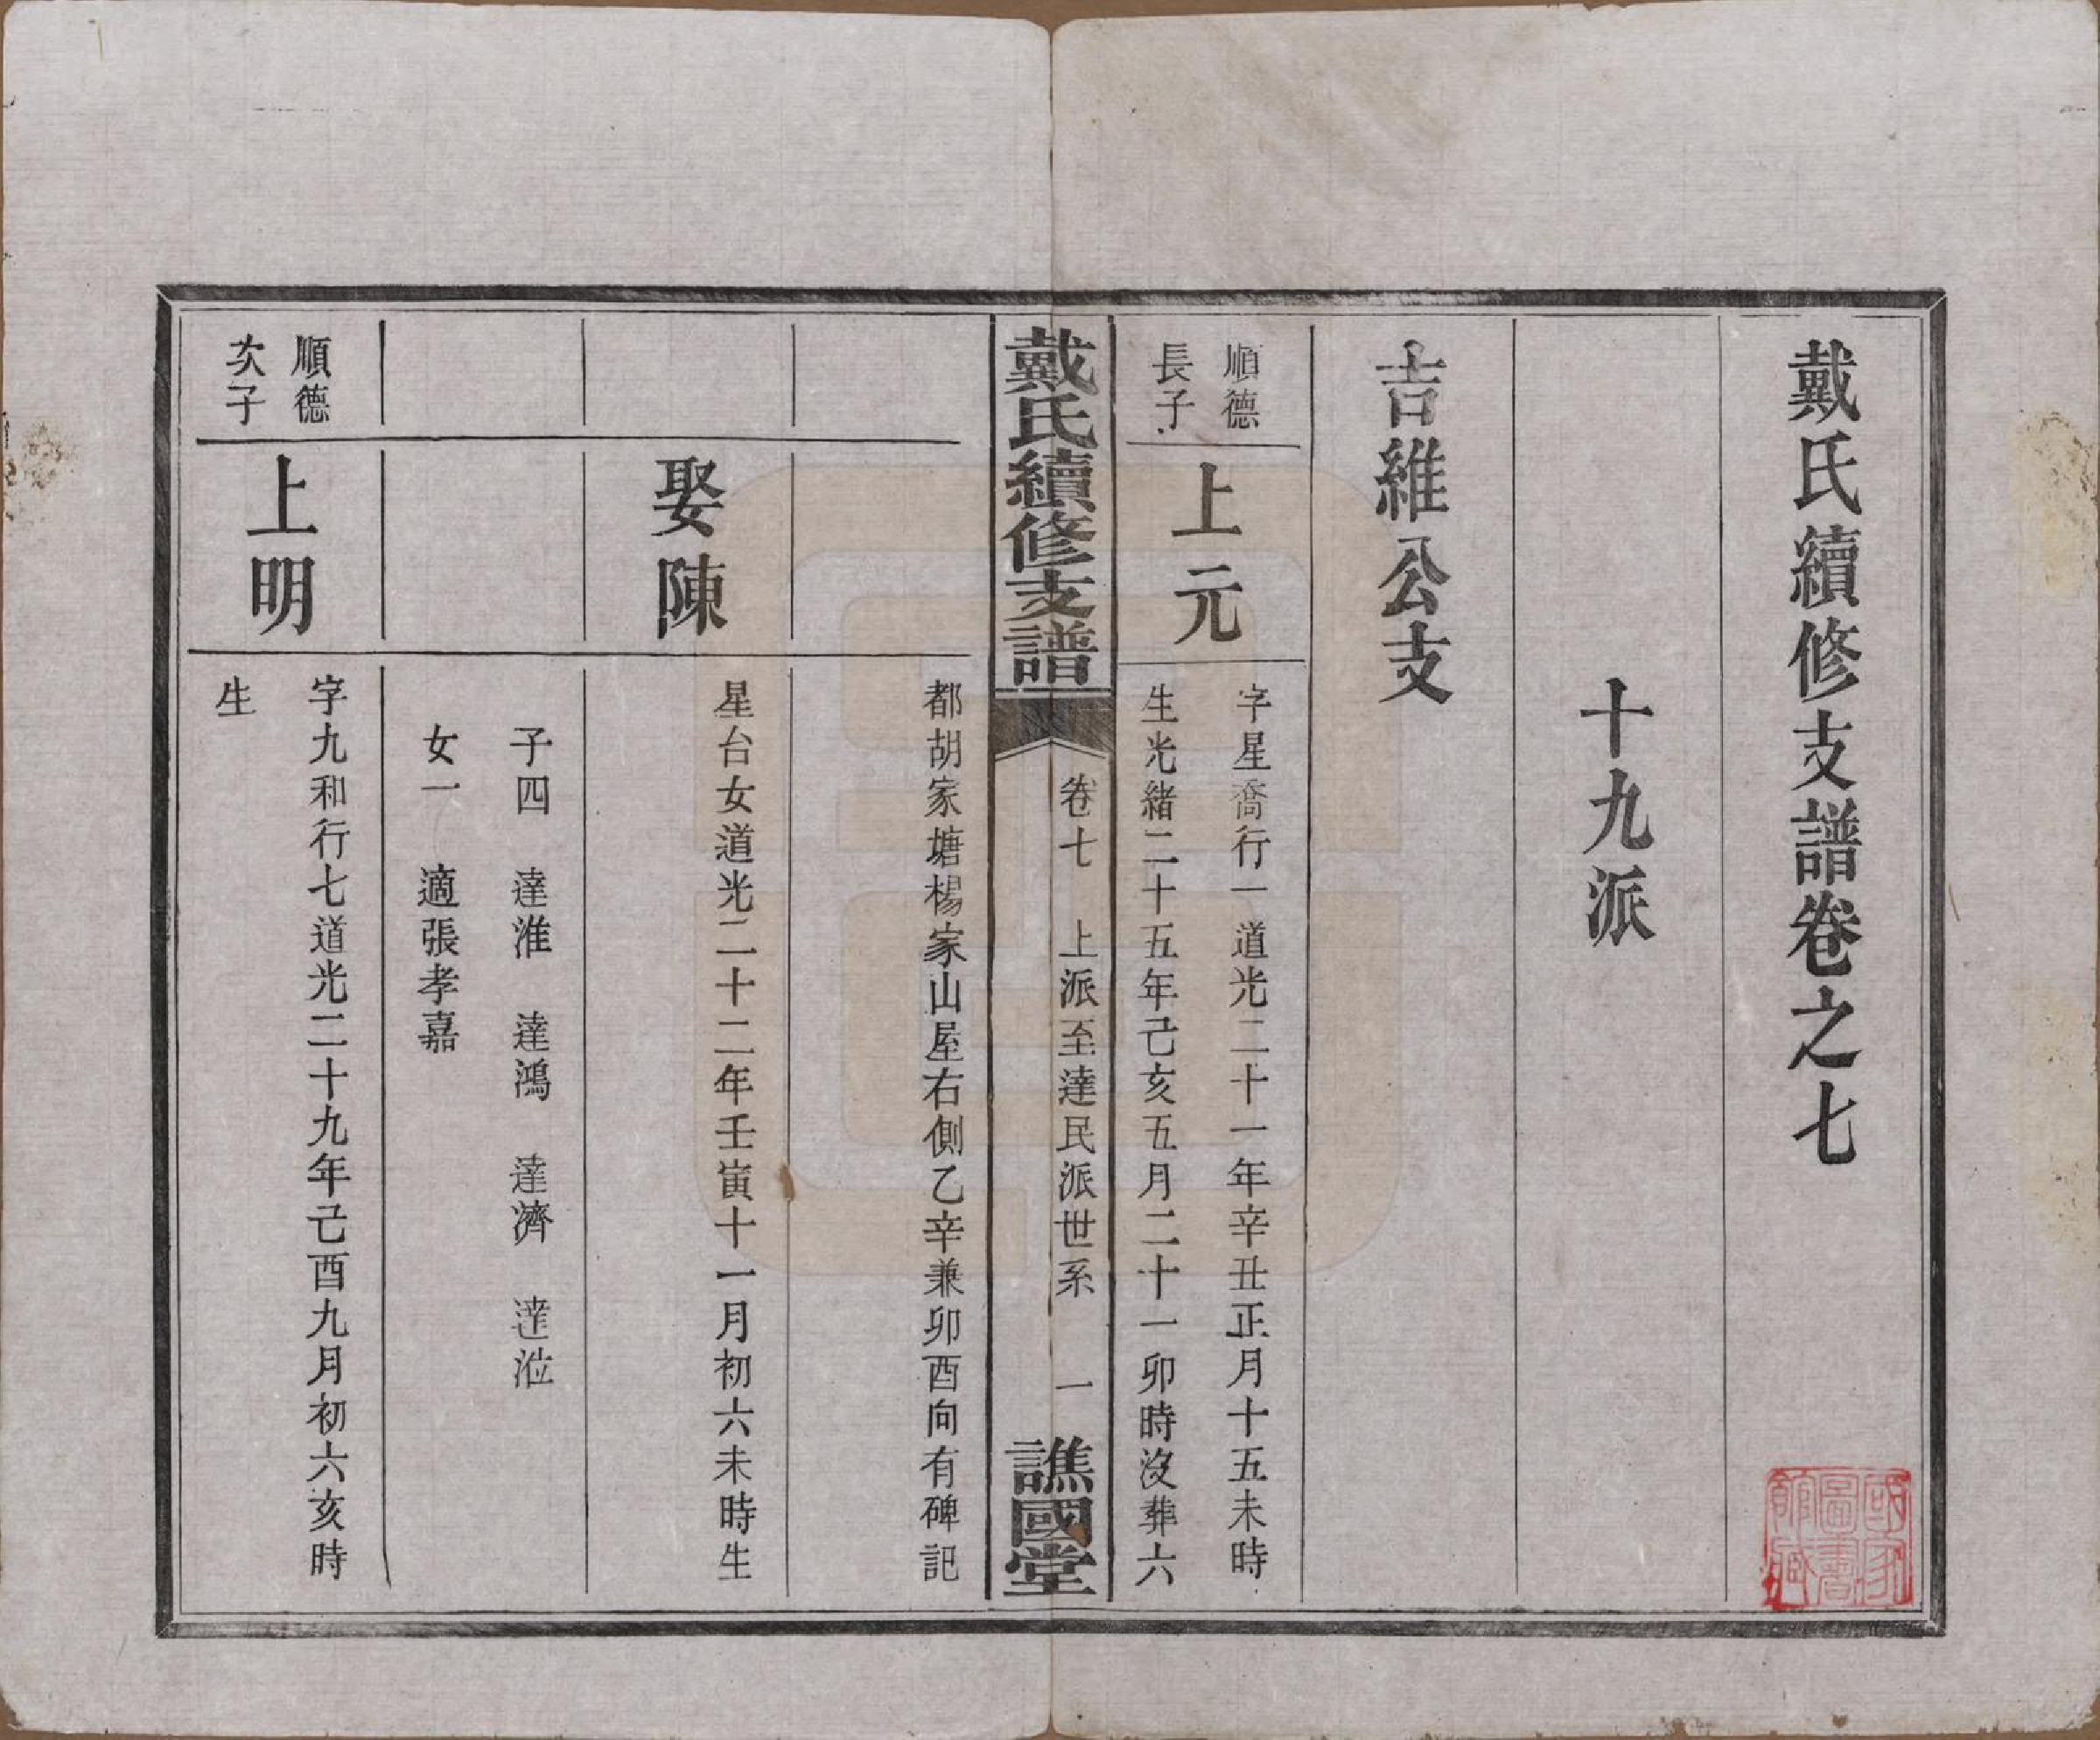 戴氏續修支譜卷之七
十九派
吉維公支
順德
長子
上元
字星喬行一道光二十一年辛丑正月十五未時
生光緒二十五年己亥五月二十一卯時沒葬六
戴氏續修支譜
卷七 上派至達民派世系 一
譙國堂
都胡家塘楊家山屋右側乙辛兼卯酉向有碑記
娶陳
星台女道光二十二年壬寅十一月初六未時生
子四 達淮 達鴻 達濟 達涖
女一 適張孝嘉
順德
次子
上明
字九和行七道光二十九年己酉九月初六亥時
生
國家
圖書
館藏